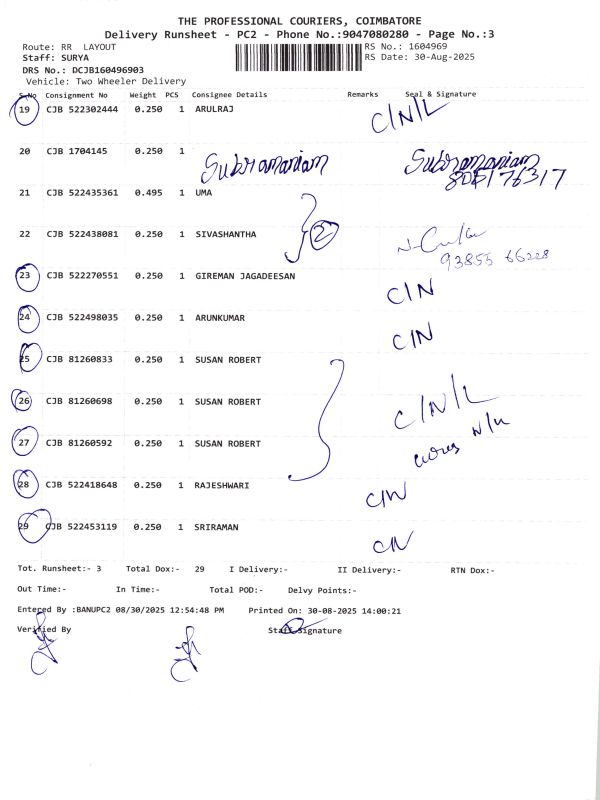 THE PROFESSIONAL COURIERS, COIMBATORE
Delivery Runsheet - PC2 - Phone No.:9047080280 - Page No.:3
Route: RR LAYOUT RS No.: 1604969
Staff: SURYA RS Date: 30-Aug-2025
DRS No.: DCJB160496903
Vehicle: Two Wheeler Delivery
S.No Consignment No Weight PCS Consignee Details Remarks Seal & Signature
19 CJB 522302444 0.250 1 ARULRAJ C/N/L
20 CJB 1704145 0.250 1 Subramaniam Subramaniam
76317
21 CJB 522435361 0.495 1 UMA
22 CJB 522438081 0.250 1 SIVASHANTHA 2
93855 66228
23 CJB 522270551 0.250 1 GIREMAN JAGADEESAN C/N
24 CJB 522498035 0.250 1 ARUNKUMAR C/N
25 CJB 81260833 0.250 1 SUSAN ROBERT
26 CJB 81260698 0.250 1 SUSAN ROBERT C/N/L
27 CJB 81260592 0.250 1 SUSAN ROBERT
28 CJB 522418648 0.250 1 RAJESHWARI C/N
29 CJB 522453119 0.250 1 SRIRAMAN C/N
Tot. Runsheet:- 3 Total Dox:- 29 I Delivery:- II Delivery:- RTN Dox:-
Out Time:- In Time:- Total POD:- Delvy Points:-
Entered By :BANUPC2 08/30/2025 12:54:48 PM Printed On: 30-08-2025 14:00:21
Verified By Staff Signature